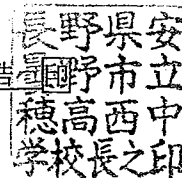 長野県安
曇野市立
穂高西中
学校長之印
印